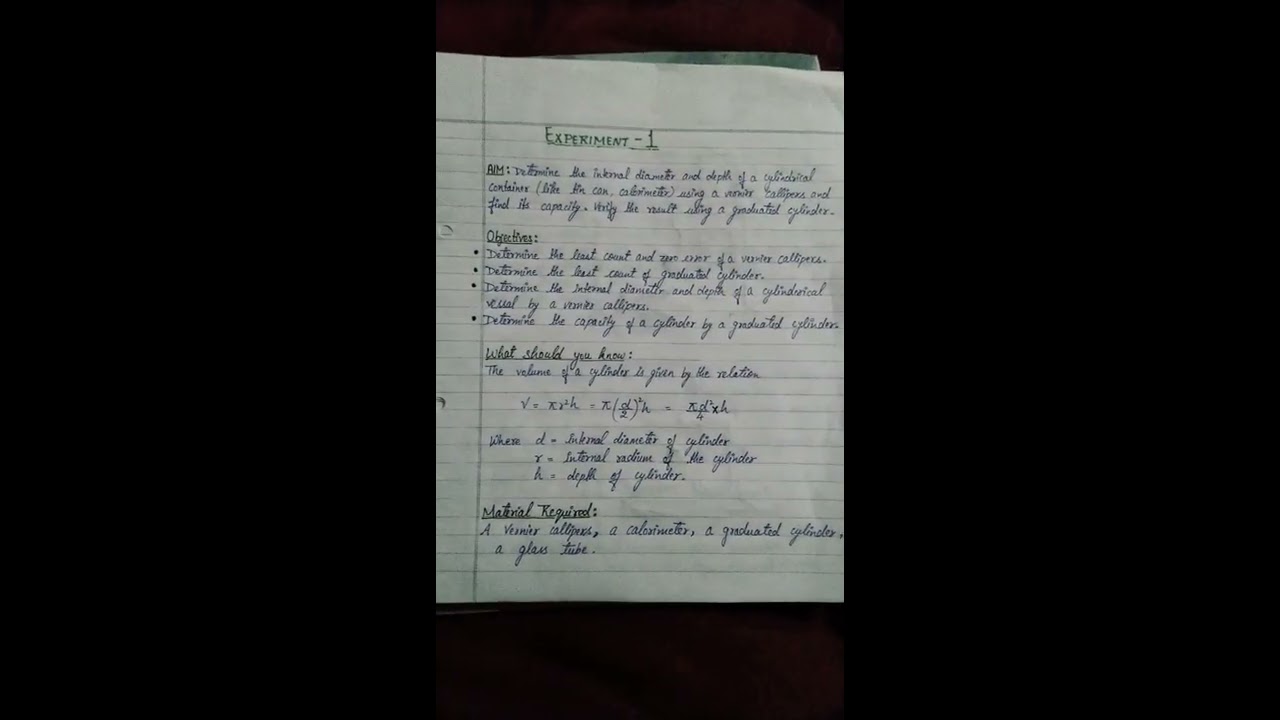 EXPERIMENT - 1
AIM: Determine the internal diameter and depth of a cylindrical
container (like tin can, calorimeter) using a vernier callipers and
find its capacity. Verify the result using a graduated cylinder.
Objectives:
• Determine the least count and zero error of a vernier callipers.
• Determine the least count of graduated cylinder.
• Determine the internal diameter and depth of a cylinderical
vessal by a vernier callipers.
• Determine the capacity of a cylinder by a graduated cylinder.
What should you know:
The volume of a cylinder is given by the relation
V = πr²h = π(d/2)²h = πd²/4 × h
Where d = internal diameter of cylinder
r = internal radium of the cylinder
h = depth of cylinder.
Material Required:
A vernier callipers, a calorimeter, a graduated cylinder,
a glass tube.